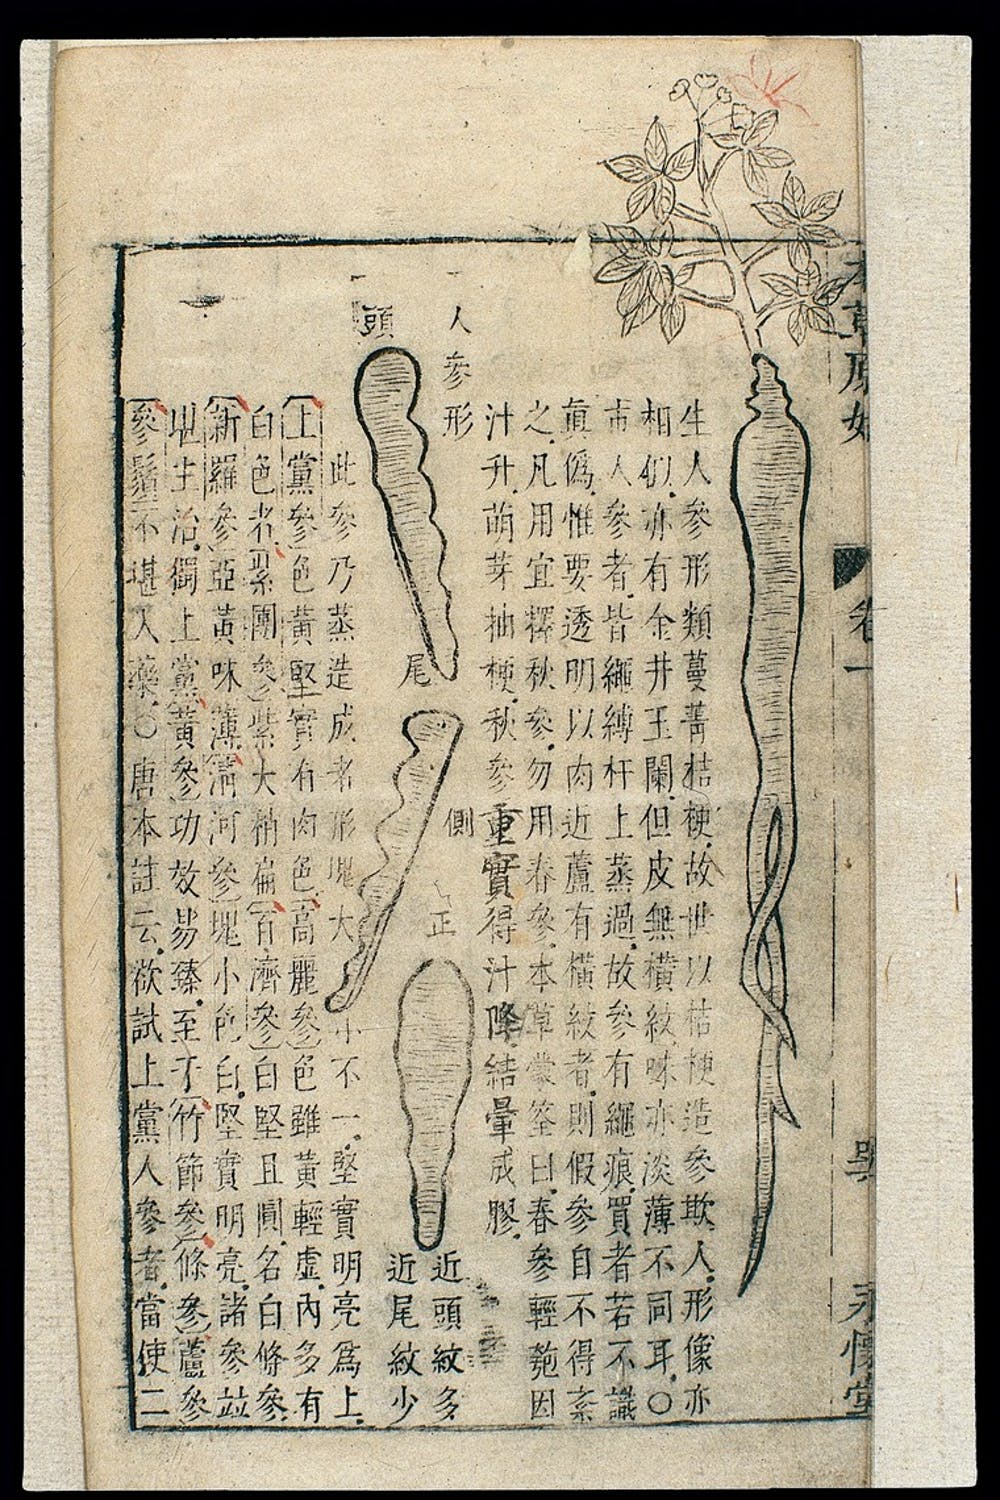 本草原始
卷一
永懷堂
生人參形類蔓菁桔梗故世以桔梗造參欺人形像亦
相似亦有金井玉闌但皮無橫紋味亦淡薄不同耳〇
市人參者皆繩縛杆上蒸過故參有繩痕買者若不識
真偽惟要透明以肉近蘆有橫紋者則假參自不得紊
之凡用宜擇秋參勿用春參本草蒙筌曰春參輕匏因
汁升萌芽抽梗秋參重實得汁降結暈成膠
人參形
頭
尾
側
正
近頭紋多
近尾紋少
此參乃蒸造成者形塊大小不一堅實明亮爲上
上黨參色黃堅實有肉色高麗參色雖黃輕虛內多有
白色者緊團參紫大稍匾百濟參白堅且圓名白條參
新羅參亞黃味薄淸河參塊小色白堅實明亮諸參並
地生治獨上黨黃參功效易臻至于竹節參條參蘆參
參鬚不堪入藥〇唐本註云欲試上黨人參者當使二